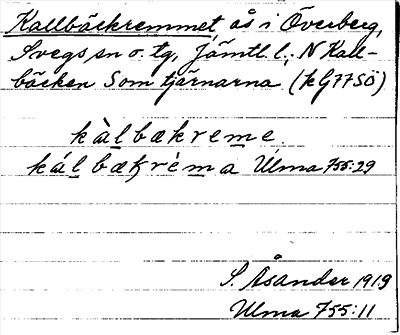 Kallbäckremmet, ås i Överberg,
Svegs sn o. tg, Jämtl. l.; N Kall-
bäcken Som tjärnarna (kG77SÖ)
kàlbækreme.
kálbækrèma Ulma 755:29
S. Åsander 1919
Ulma 755:11